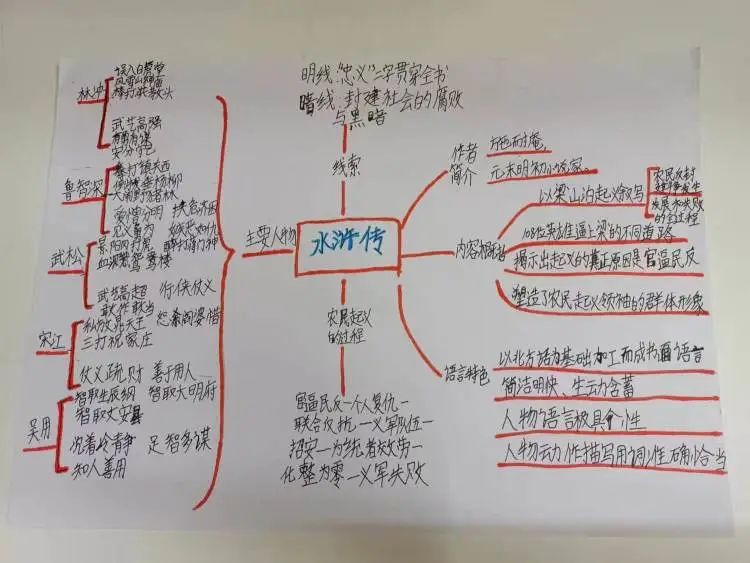 明线:"忠义"二字贯穿全书
暗线:封建社会的腐败
与黑暗
线索
水浒传
主要人物
林冲
误入白虎堂
风雪山神庙
棒打洪教头
武艺高强
安分守己
鲁智深
拳打镇关西
倒拔垂杨柳
大闹野猪林
爱憎分明 扶危济困
见义勇为 嫉恶如仇
武松
景阳冈打虎 醉打蒋门神
血溅鸳鸯楼
武艺高超 行侠仗义
敢作敢当
宋江
私放晁天王 怒杀阎婆惜
三打祝家庄
仗义疏财 善于用人
吴用
智取生辰纲 智取大明府
智取文安县
沈着冷青争 足智多谋
知人善用
作者
简介
施耐庵
元末明初小说家
内容
以梁山泊起义叙写
农民反封
发展和失败
的全过程
108位英雄逼上梁的不同道路
揭示出起义的真正原因是官逼民反
塑造了农民起义领袖的群体形象
语言特色
以北方话为基础加工而成书面语言
简洁明快、生动含蓄
人物语言极具个性
人物动作描写用词准确恰当
农民起义
的过程
官逼民反一个人复仇一
联合反抗一义军队伍一
招安一为统者效劳一
化整为零一义军失败